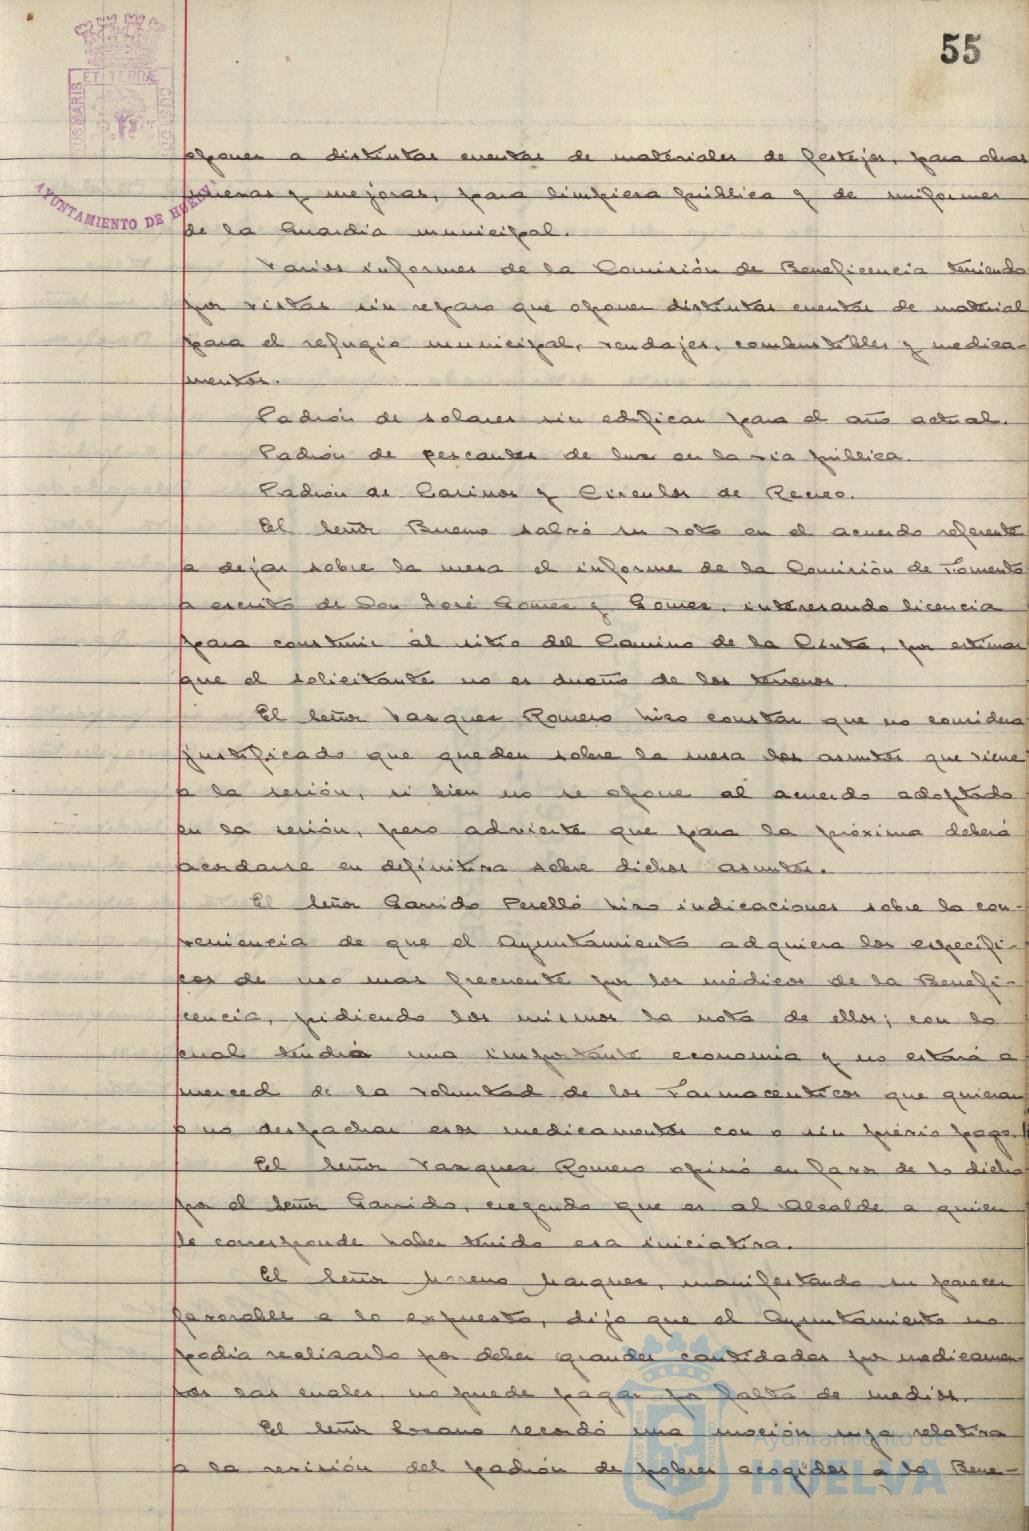 55
ET TERRÆ
US MARIS
CUSTOD
AYUNTAMIENTO DE HUELVA
oponer a distintas cuentas de materiales de festejos, para obras
nuevas y mejoras, para limpieza pública y de uniformes
de la Guardia municipal.
Varios informes de la Comisión de Beneficencia teniendo
por vistas sin reparo que oponer distintas cuentas de material
para el refugio municipal, vendajes, combustibles y medica-
mentos.
Padrón de solares sin edificar para el año actual.
Padrón de pescantes de luz en la vía pública.
Padrón de Casinos y Circulos de Recreo.
El Señor Bueno salvó su voto en el acuerdo referente
a dejar sobre la mesa el informe de la Comisión de Fomento
a escrito de Don José Gomez y Gomez, interesando licencia
para construir al sitio del Camino de la Cinta, por estimar
que el solicitante no es dueño de los terrenos.
El Señor Vazquez Romero hizo constar que no considera
justificado que queden sobre la mesa los asuntos que viene
a la sesión, si bien no se opone al acuerdo adoptado
en la sesión, pero advierte que para la próxima deberá
acordarse en definitiva sobre dichos asuntos.
El Señor Garrido Perelló hizo indicaciones sobre la con-
veniencia de que el Ayuntamiento adquiera los especifi-
cos de uso mas frecuente por los médicos de la Benefi-
cencia, pidiendo los mismos la nota de ellos; con lo
cual tendría una importante economía y no estará a
merced de la voluntad de los Farmacéuticos que quieran
o no despachar esos medicamentos con o sin previo pago.
El Señor Vazquez Romero opinó en favor de lo dicho
por el Señor Garrido, creyendo que es al Alcalde a quien
le corresponde haber tenido esa iniciativa.
El Señor Moreno Marquez, manifestando su parecer
favorable a lo expuesto, dijo que el Ayuntamiento no
podía realizarlo por deber grandes cantidades por medicamen-
tos las cuales, no puede pagar por falta de medios.
El Señor Lozano recordó una moción suya relativa
a la revisión del padrón de pobres acogidos a la Bene-
Ayuntamiento de
HUELVA